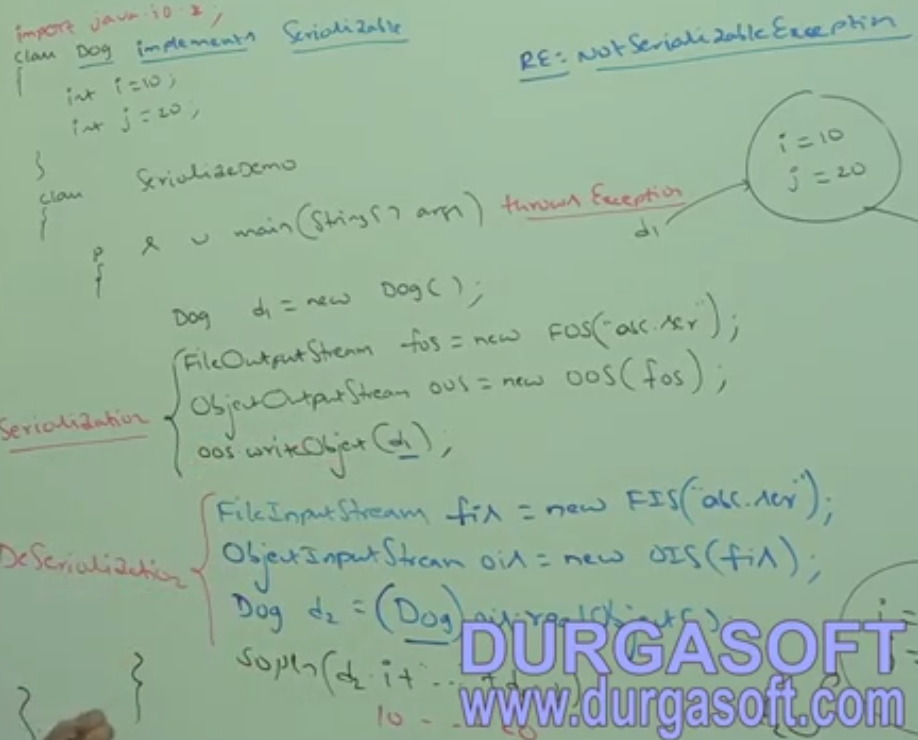 import java.io.*;
class Dog implements Serializable
{
int i=10;
int j=20;
}
class SerializeDemo
{
p s v main(String[] args) throws Exception
{
Dog d1 = new Dog();
FileOutputStream fos = new FOS("abc.ser");
ObjectOutputStream oos = new OOS(fos);
oos.writeObject(d1);
Serialization
FileInputStream fis = new FIS("abc.ser");
ObjectInputStream ois = new OIS(fis);
Dog d2 = (Dog) ois.readObject();
DeSerialization
Sopln(d2.i+
10 - - -
}
}
RE: NotSerializableException
i=10
j=20
d1
DURGASOFT
www.durgasoft.com